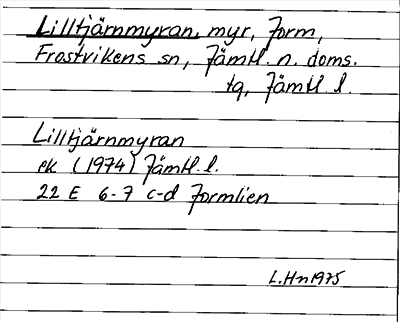 Lilltjärnmyran, myr, Form,
Frostvikens sn, Jämtl. n. doms.
tg, Jämtl. l.
Lilltjärnmyran
ek (1974) Jämtl. l.
22 E 6-7 c-d Jormlien
L.Hn 1975